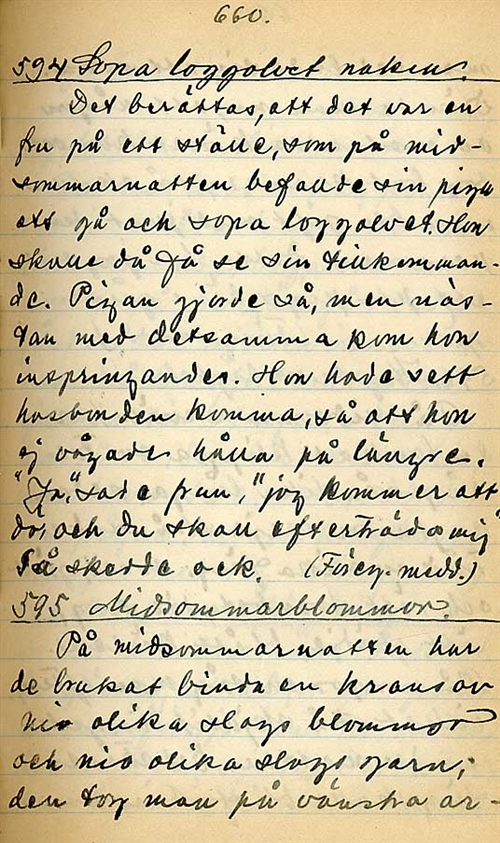 660.
594 Sopa loggolvet naken.
Det berättas, att det var en
fru på ett ställe, som på mid-
sommarnatten befallde sin piga
att gå och sopa loggolvet. Hon
skulle då få se sin tillkomman-
de. Pigan gjorde så, men näs-
tan med detsamma kom hon
inspringandes. Hon hade sett
husbonden komma, så att hon
ej vågade hålla på längre.
"Ja," sade frun, "jag kommer att
dö, och du skall efterträda mig"
Så skedde ock. (Föreg. medd.)
595 Midsommarblommor.
På midsommarnatten har
de brukat binda en krans av
nio olika slags blommor
och nio olika slags garn;
den tog man på vänstra ar-